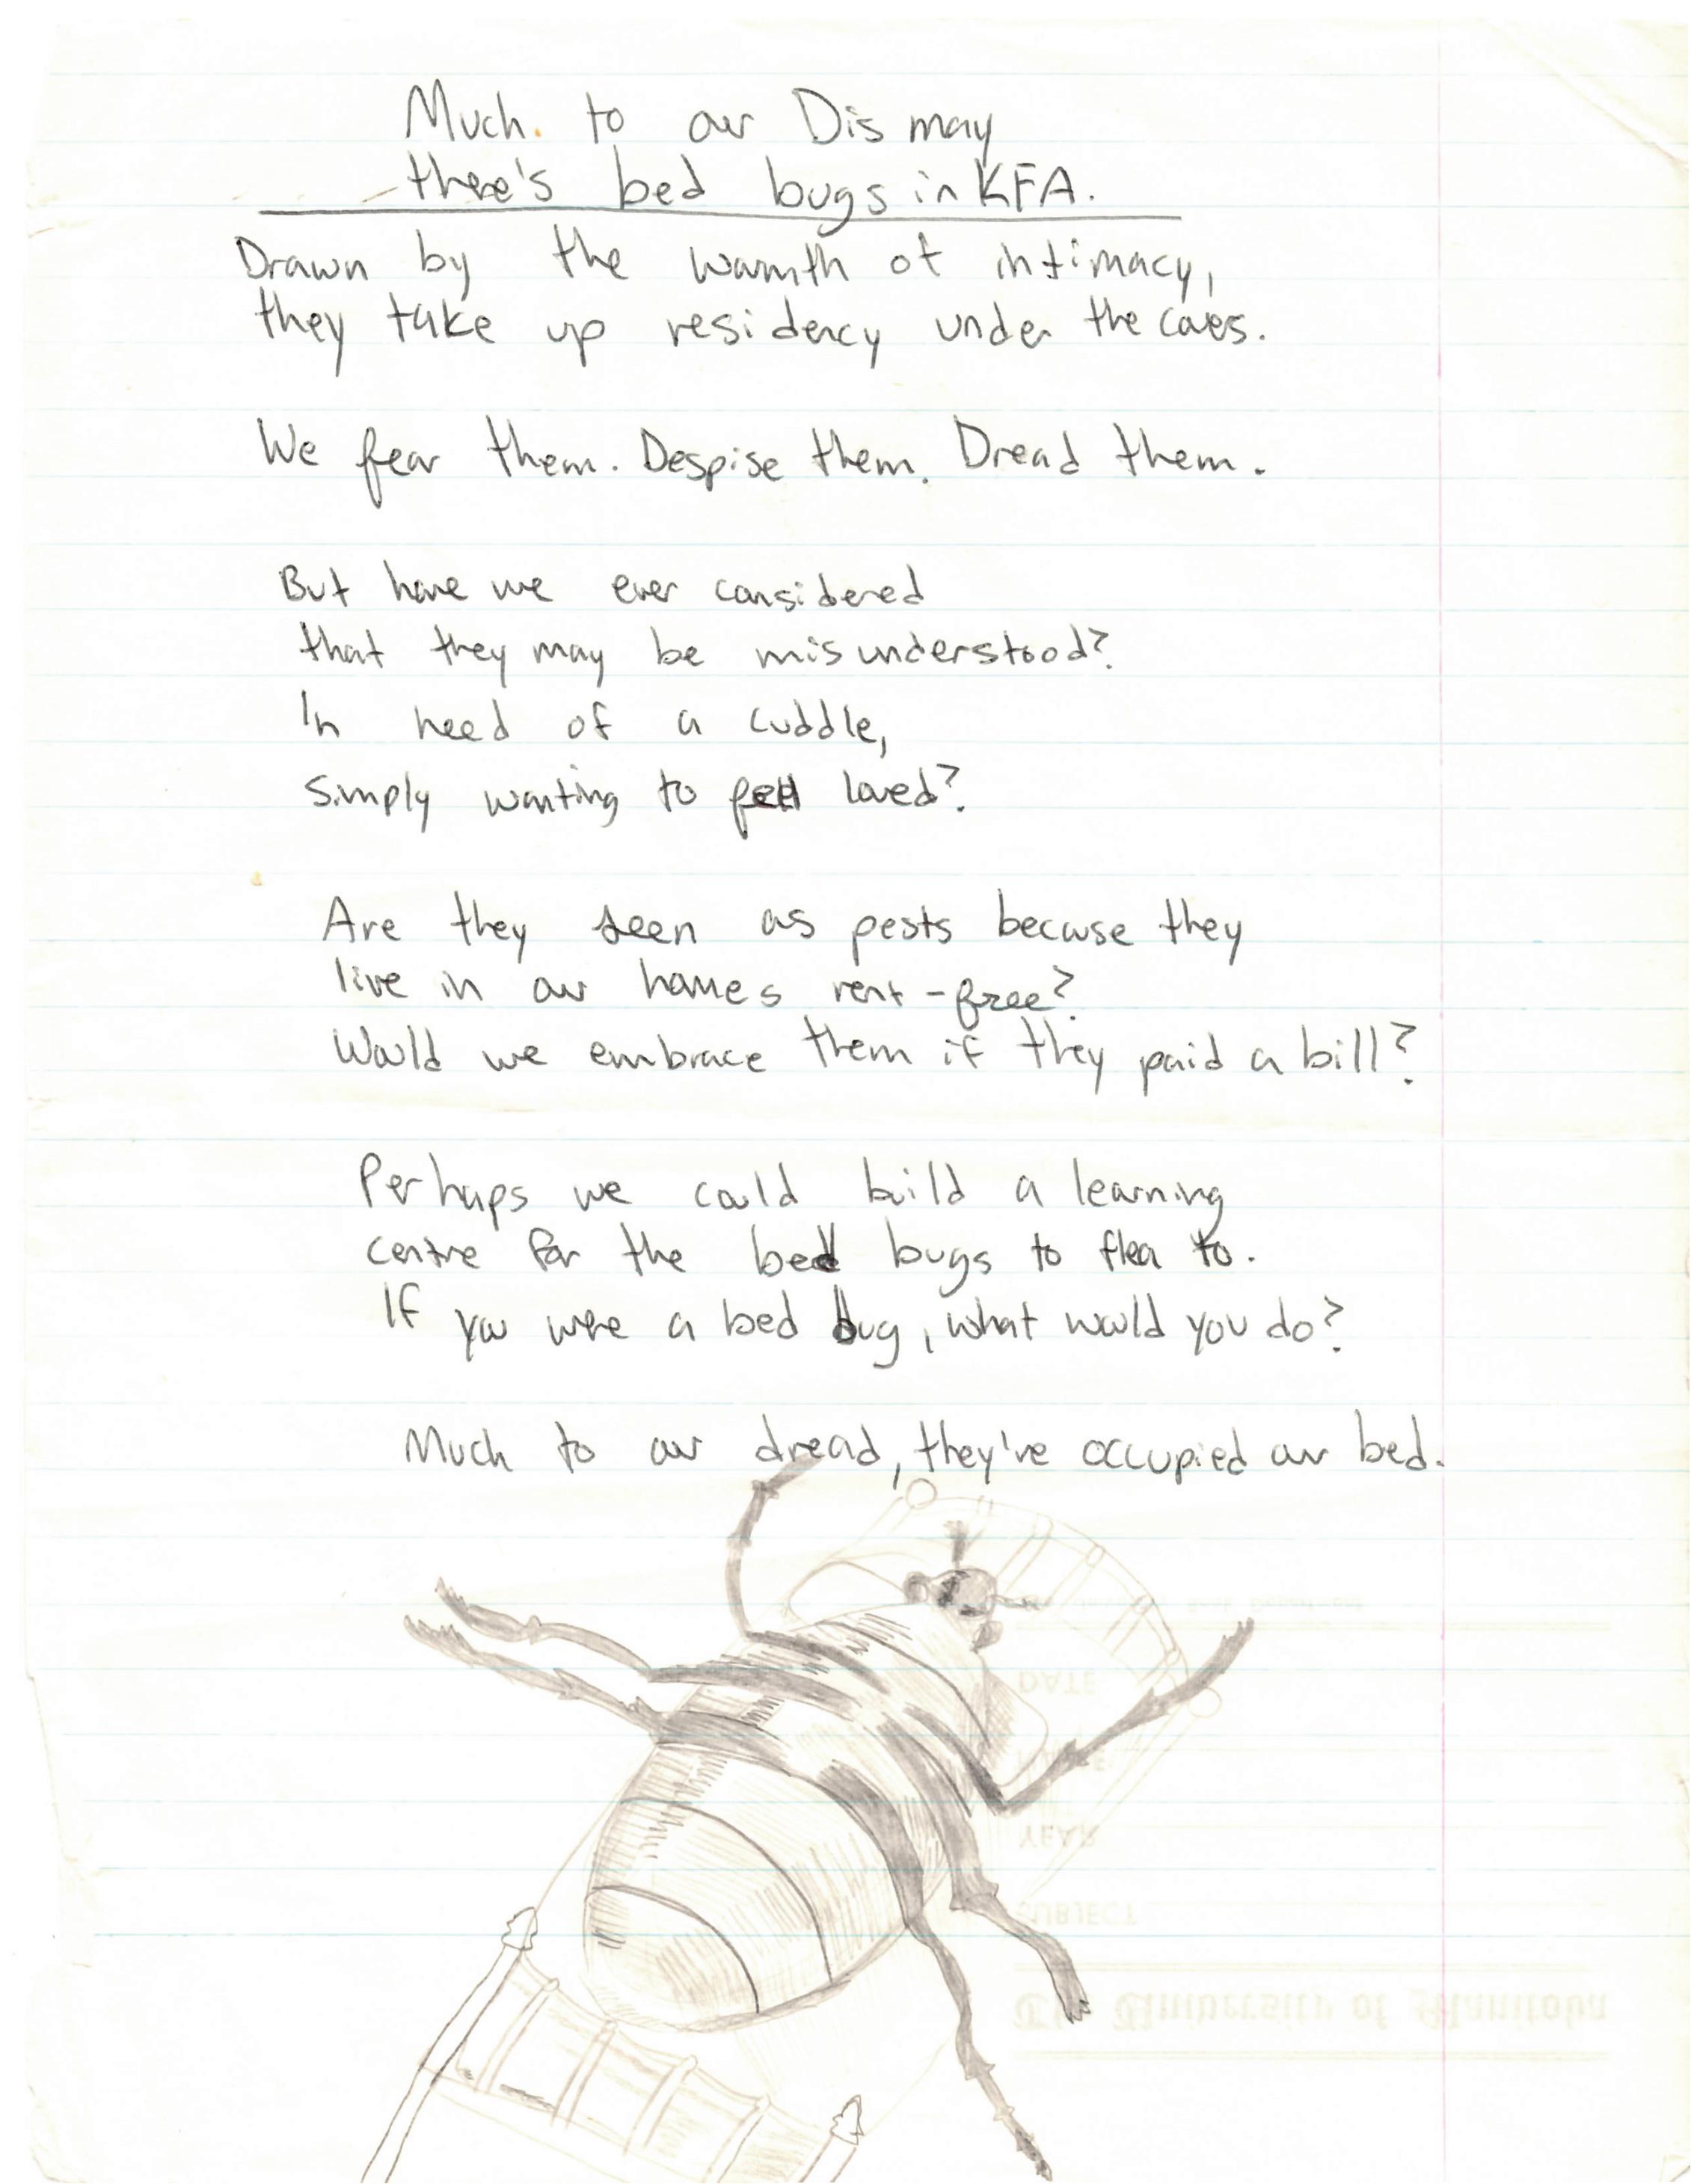 Much to our Dismay
there's bed bugs in KFA.
Drawn by the warmth of intimacy,
they take up residency under the covers.
We fear them. Despise them. Dread them.
But have we ever considered
that they may be misunderstood?
In need of a cuddle,
simply wanting to feel loved?
Are they seen as pests because they
live in our homes rent-free?
Would we embrace them if they paid a bill?
Perhaps we could build a learning
centre for the bed bugs to flea to.
If you were a bed bug, what would you do?
Much to our dread, they've occupied our bed.
Book Department
DATE
YEAR
SUBJECT
The University of Manitoba